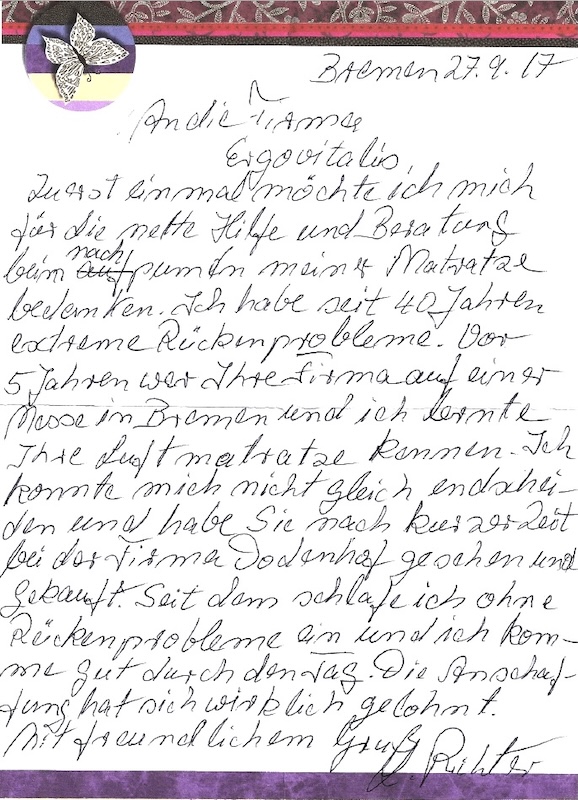 Bremen 27.9.17
An die Firma
Ergovitalis
Zuerst einmal möchte ich mich
für die nette Hilfe und Beratung
beim nach pumpen meiner Matratze
bedanken. Ich habe seit 40 Jahren
extreme Rückenprobleme. Vor
5 Jahren war Ihre Firma auf einer
Messe in Bremen und ich lernte
Ihre Luftmatratze kennen. Ich
konnte mich nicht gleich endschei-
den und habe Sie nach kurzer Zeit
bei der Firma Dodenhof gesehen und
gekauft. Seit dem schlafe ich ohne
Rückenprobleme ein und ich kom-
me gut durch den Tag. Die Anschaf-
fung hat sich wirklich gelohnt.
Mit freundlichem Gruß
Richter